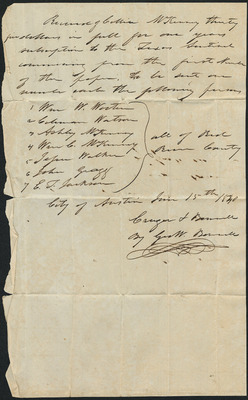 Received of Collin McKinney thirty
five dollars in full for one years
subscription to the Texas Sentinel
commencing from the first number
of the paper. To be sent one
number each the following persons
1 Wm W. Wooten
2 Coleman Watson
3 Ashley McKinney
4 Wm C. McKinney
5 Jasper Walker
6 John Gregg
7 E. T. Jackson
all of Red
River County
City of Austin June 15th 1840
Cruger & Bonnell
By Geo W. Bonnell